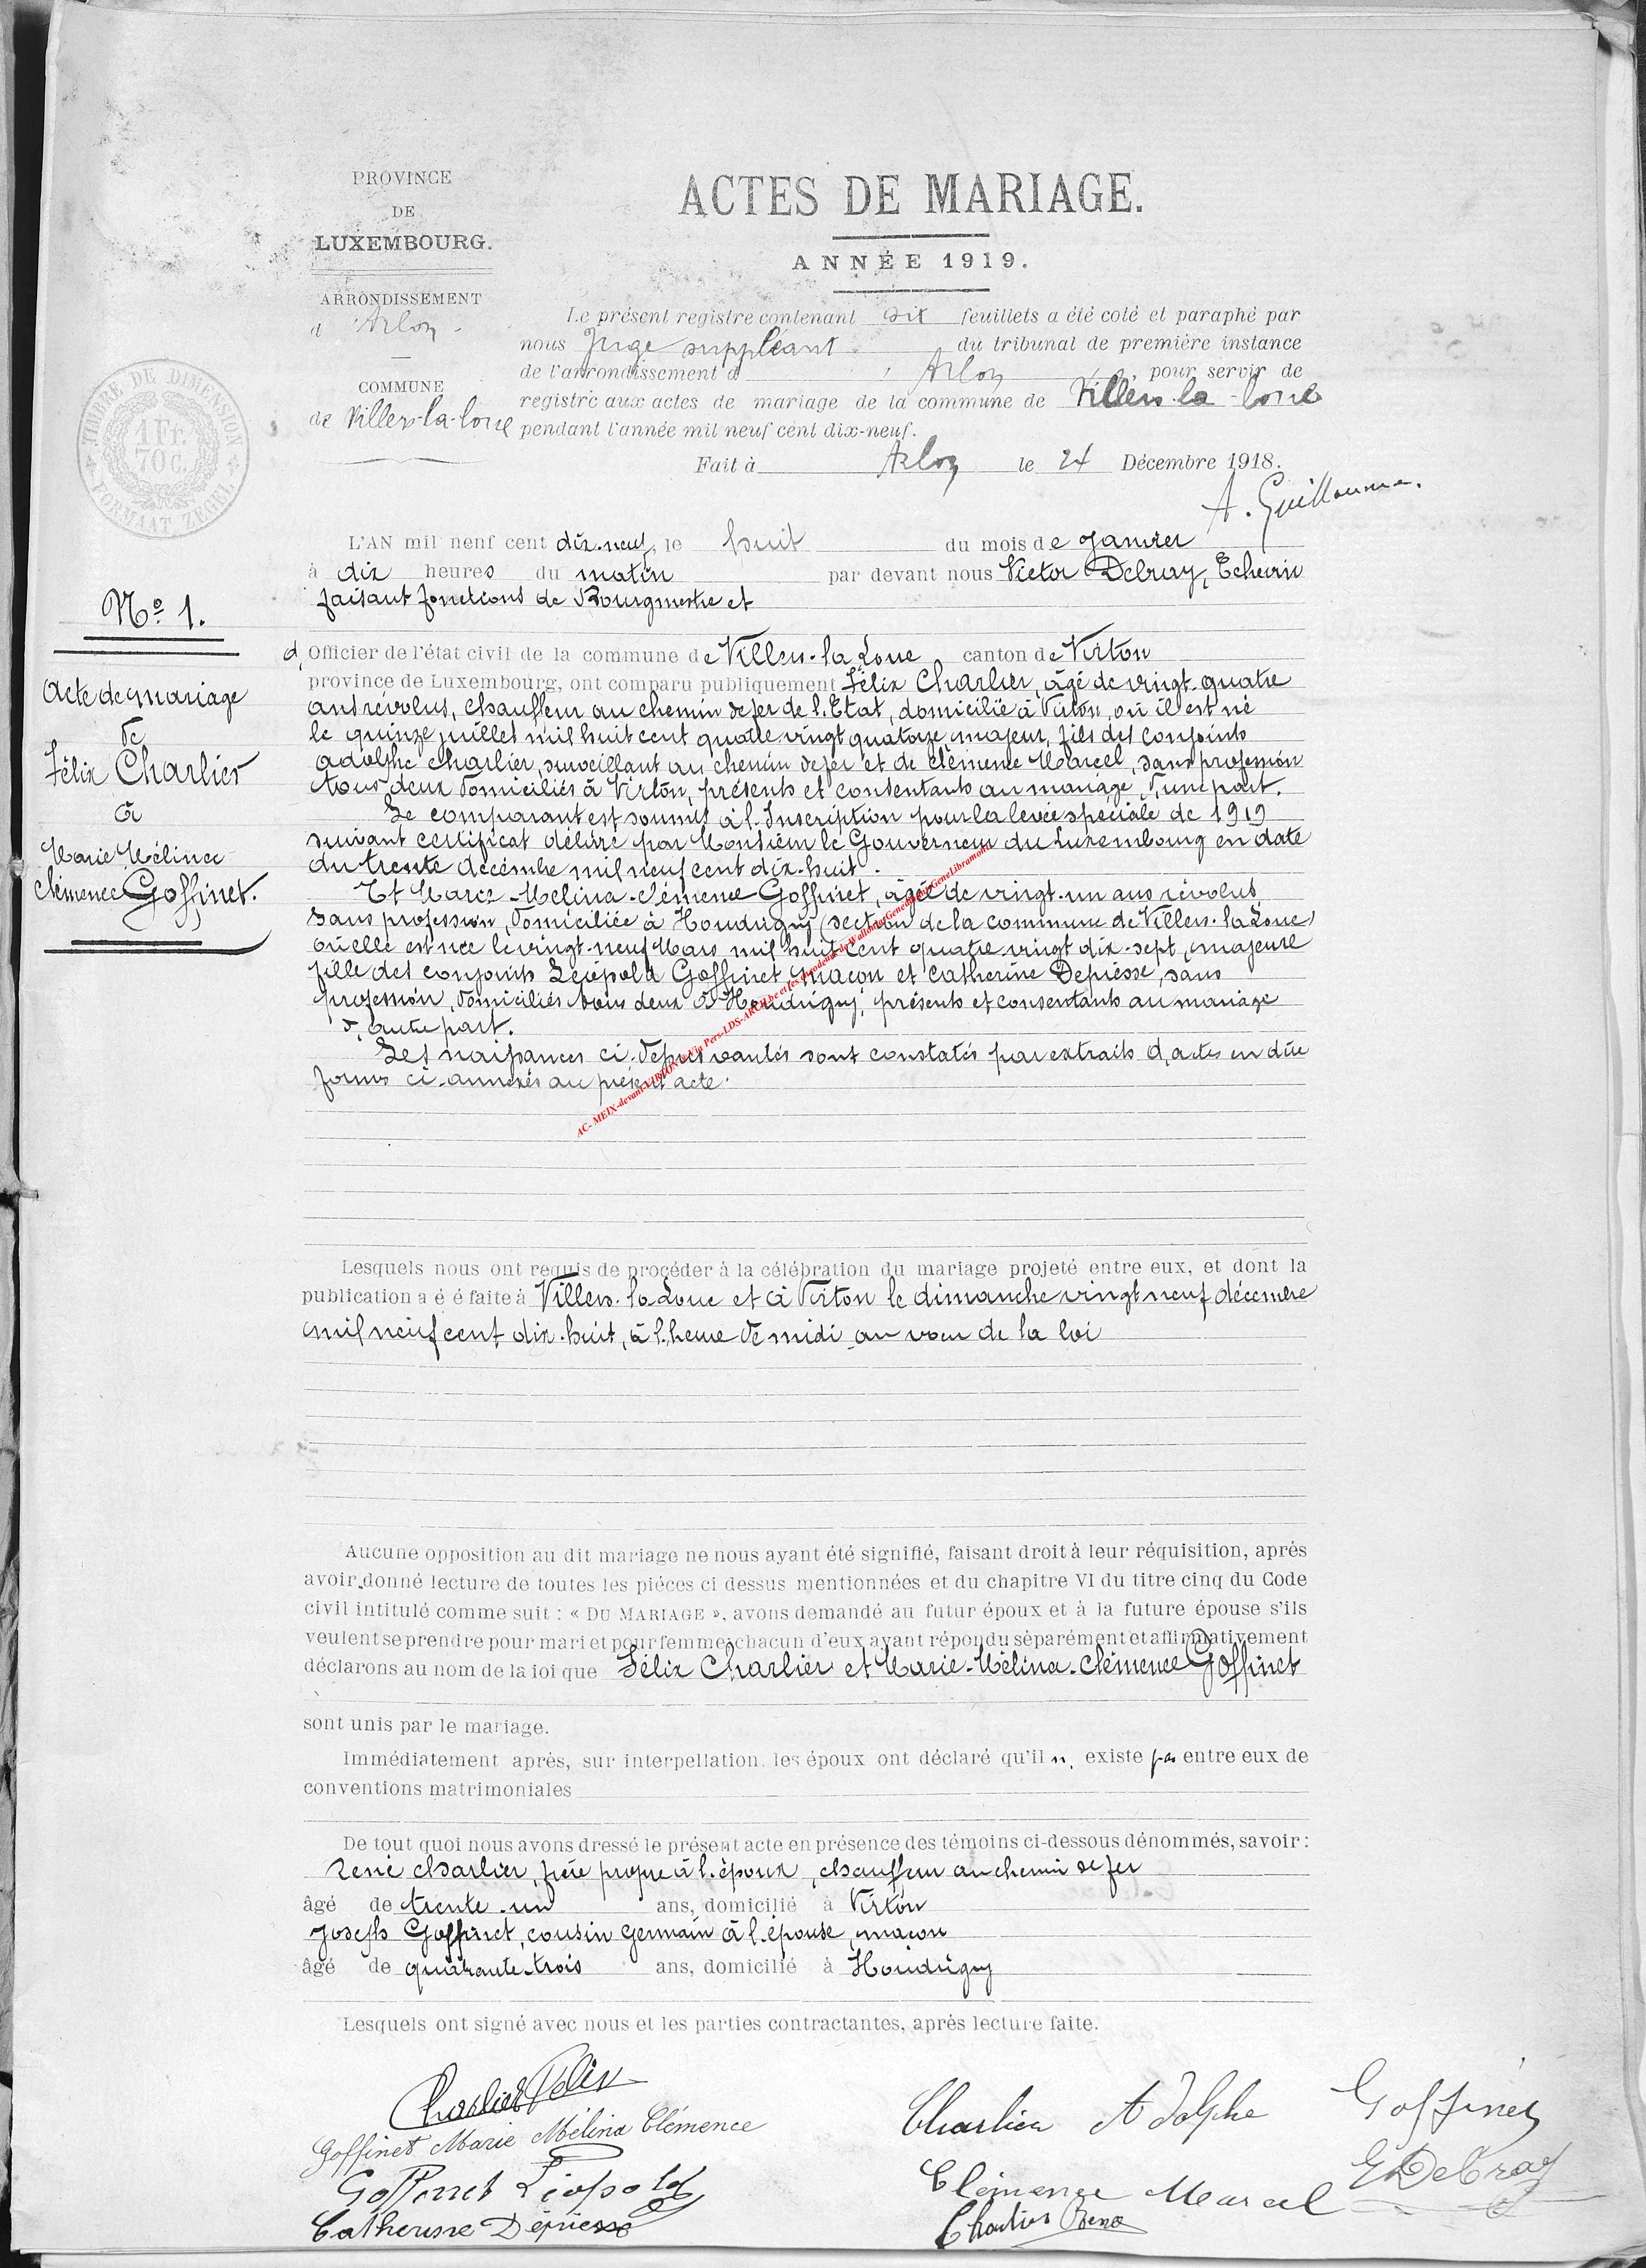 PROVINCE
DE
LUXEMBOURG.
ARRONDISSEMENT
d'Arlon
COMMUNE
de Villers-la-loue
TIMBRE DE DIMENSION
1 Fr.
70 C.
FORMAAT ZEGEL
ACTES DE MARIAGE.
ANNÉE 1919.
Le présent registre contenant six feuillets a été coté et paraphé par
nous Juge suppléant du tribunal de première instance
de l'arrondissement d'Arlon, pour servir de
registre aux actes de mariage de la commune de Villers-la-loue
pendant l'année mil neuf cent dix-neuf.
Fait à Arlon le 24 Décembre 1918.
A. Guillaume.
L'AN mil neuf cent dix-neuf, le huit du mois de Janvier
à dix heures du matin par devant nous Victor Delvay, Echevin
faisant fonctions de Bourgmestre et
Nº 1.
Acte de mariage
de
Félix Charlier
à
Marie Mélina
Clémence Goffinet.
d'Officier de l'état civil de la commune de Villers-la-Loue canton de Virton
province de Luxembourg, ont comparu publiquement Félix Charlier, âgé de vingt-quatre
ans révolus, chauffeur au chemin de fer de l'Etat, domicilié à Virton, où il est né
le quinze juillet mil huit cent quatre vingt quatorze, majeur, fils des conjoints
Adolphe Charlier, surveillant au chemin de fer et de Clémence Marcel, sans profession
tous deux domiciliés à Virton, présents et consentants au mariage, d'une part.
Le comparant est soumis à l'Inscription pour la levée spéciale de 1919
suivant certificat délivré par Monsieur le Gouverneur du Luxembourg en date
du trente décembre mil neuf cent dix-huit.
Et Marie-Mélina-Clémence Goffinet, âgée de vingt-un ans révolus
sans profession, domiciliée à Houdrigny (section de la commune de Villers-la-Loue)
où elle est née le vingt-neuf Mars mil huit cent quatre vingt dix-sept, majeure
fille des conjoints Léopold Goffinet maçon et Catherine Depiesse, sans
profession, domiciliés tous deux à Houdrigny, présents et consentants au mariage
d'autre part.
Les naissances ci-dessus sont constatés par extraits d'actes en due
forme ci-annexés au présent acte.
AC-MEIX-devant-VIRTON Via Pers-LDS-ARCH.be et les
Lesquels nous ont requis de procéder à la célébration du mariage projeté entre eux, et dont la
publication a é é faite à Villers-la-Loue et à Virton le dimanche vingt neuf décembre
mil neuf cent dix-huit, à l'heure de midi au voeu de la loi
Aucune opposition au dit mariage ne nous ayant été signifié, faisant droit à leur réquisition, après
avoir donné lecture de toutes les pièces ci dessus mentionnées et du chapitre VI du titre cinq du Code
civil intitulé comme suit : « DU MARIAGE », avons demandé au futur époux et à la future épouse s'ils
veulent se prendre pour mari et pour femme; chacun d'eux ayant répondu séparément et affirmativement
déclarons au nom de la loi que Félix Charlier et Marie-Mélina-Clémence Goffinet
sont unis par le mariage.
Immédiatement après, sur interpellation, les époux ont déclaré qu'il n' existe pas entre eux de
conventions matrimoniales
De tout quoi nous avons dressé le présent acte en présence des témoins ci-dessous dénommés, savoir :
René Charlier, frère propre à l'époux, chauffeur au chemin de fer
âgé de trente-un ans, domicilié à Virton
Joseph Goffinet, cousin germain à l'épouse, maçon
âgé de quarante-trois ans, domicilié à Houdrigny
Lesquels ont signé avec nous et les parties contractantes, après lecture faite.
Charlier Félix
Goffinet Marie Mélina Clémence
Goffinet Léopold
Catherine Depiesse
Charlier Adolphe
Goffinet
Clémence Marcel
Charlier René